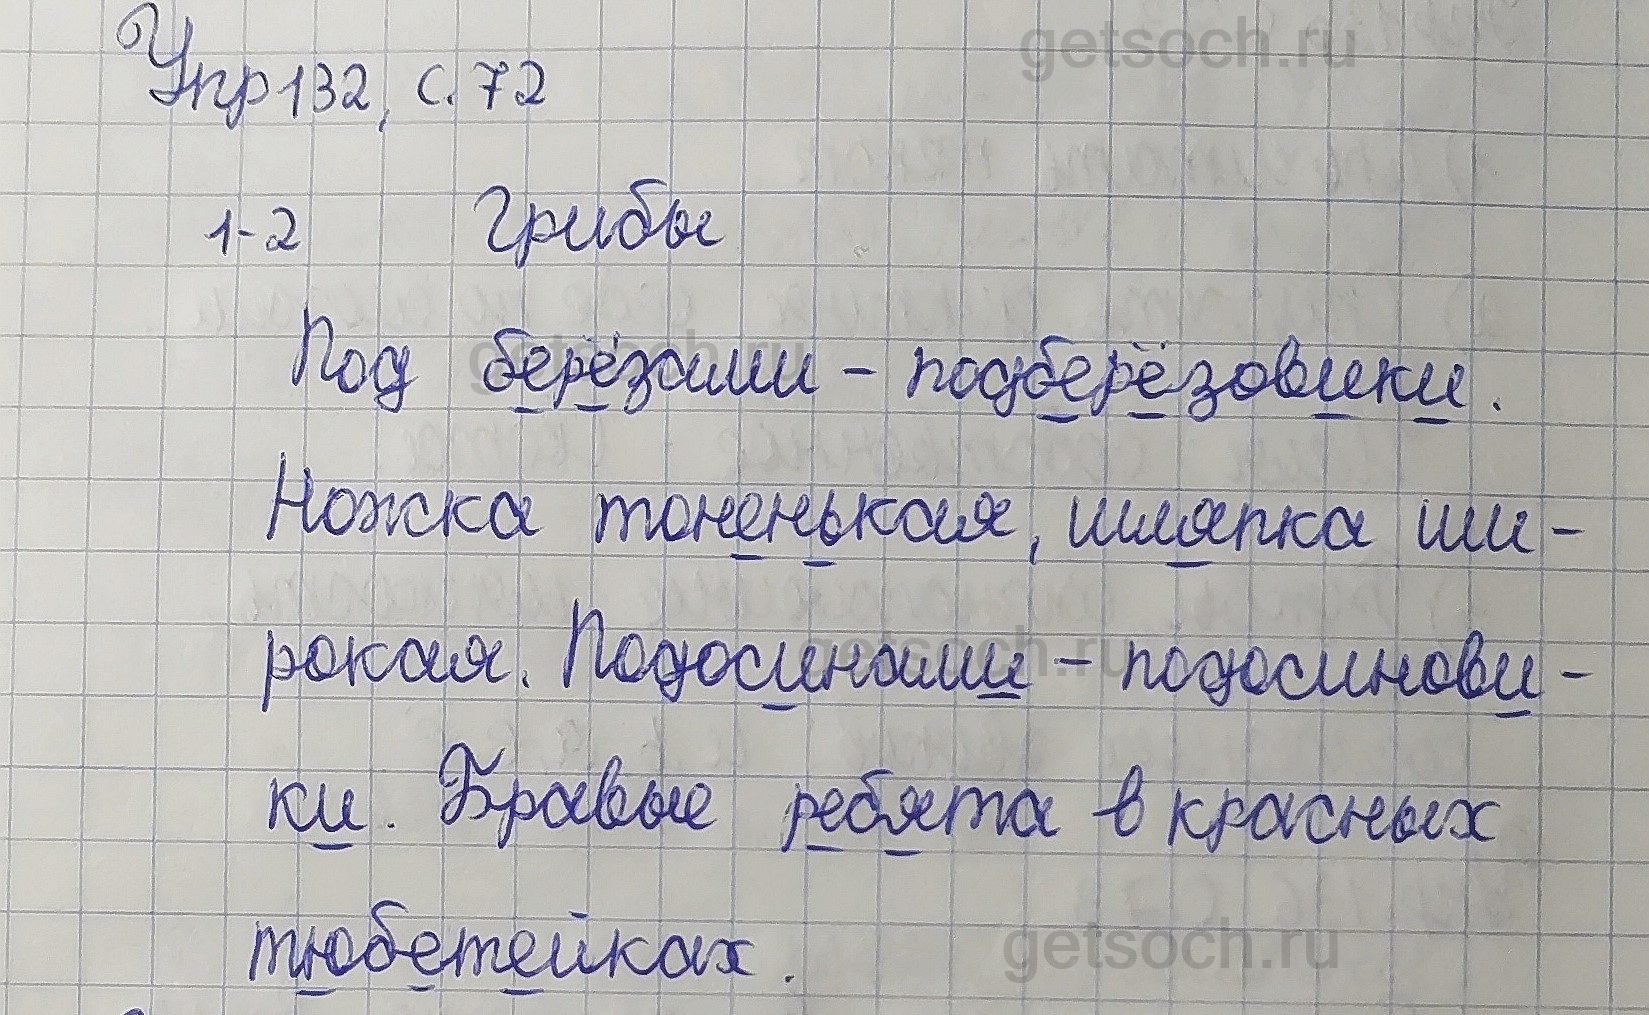 getsoch.ru
Упр 132, с. 72
1-2 Грибы
getsoch.ru
Под берёзами – подберёзовики.
Ножка тоненькая, шляпка ши-
getsoch.ru
рокая. Подосинами – подосинови-
ки. Бравые ребята в красных
getsoch.ru
тюбетейках.